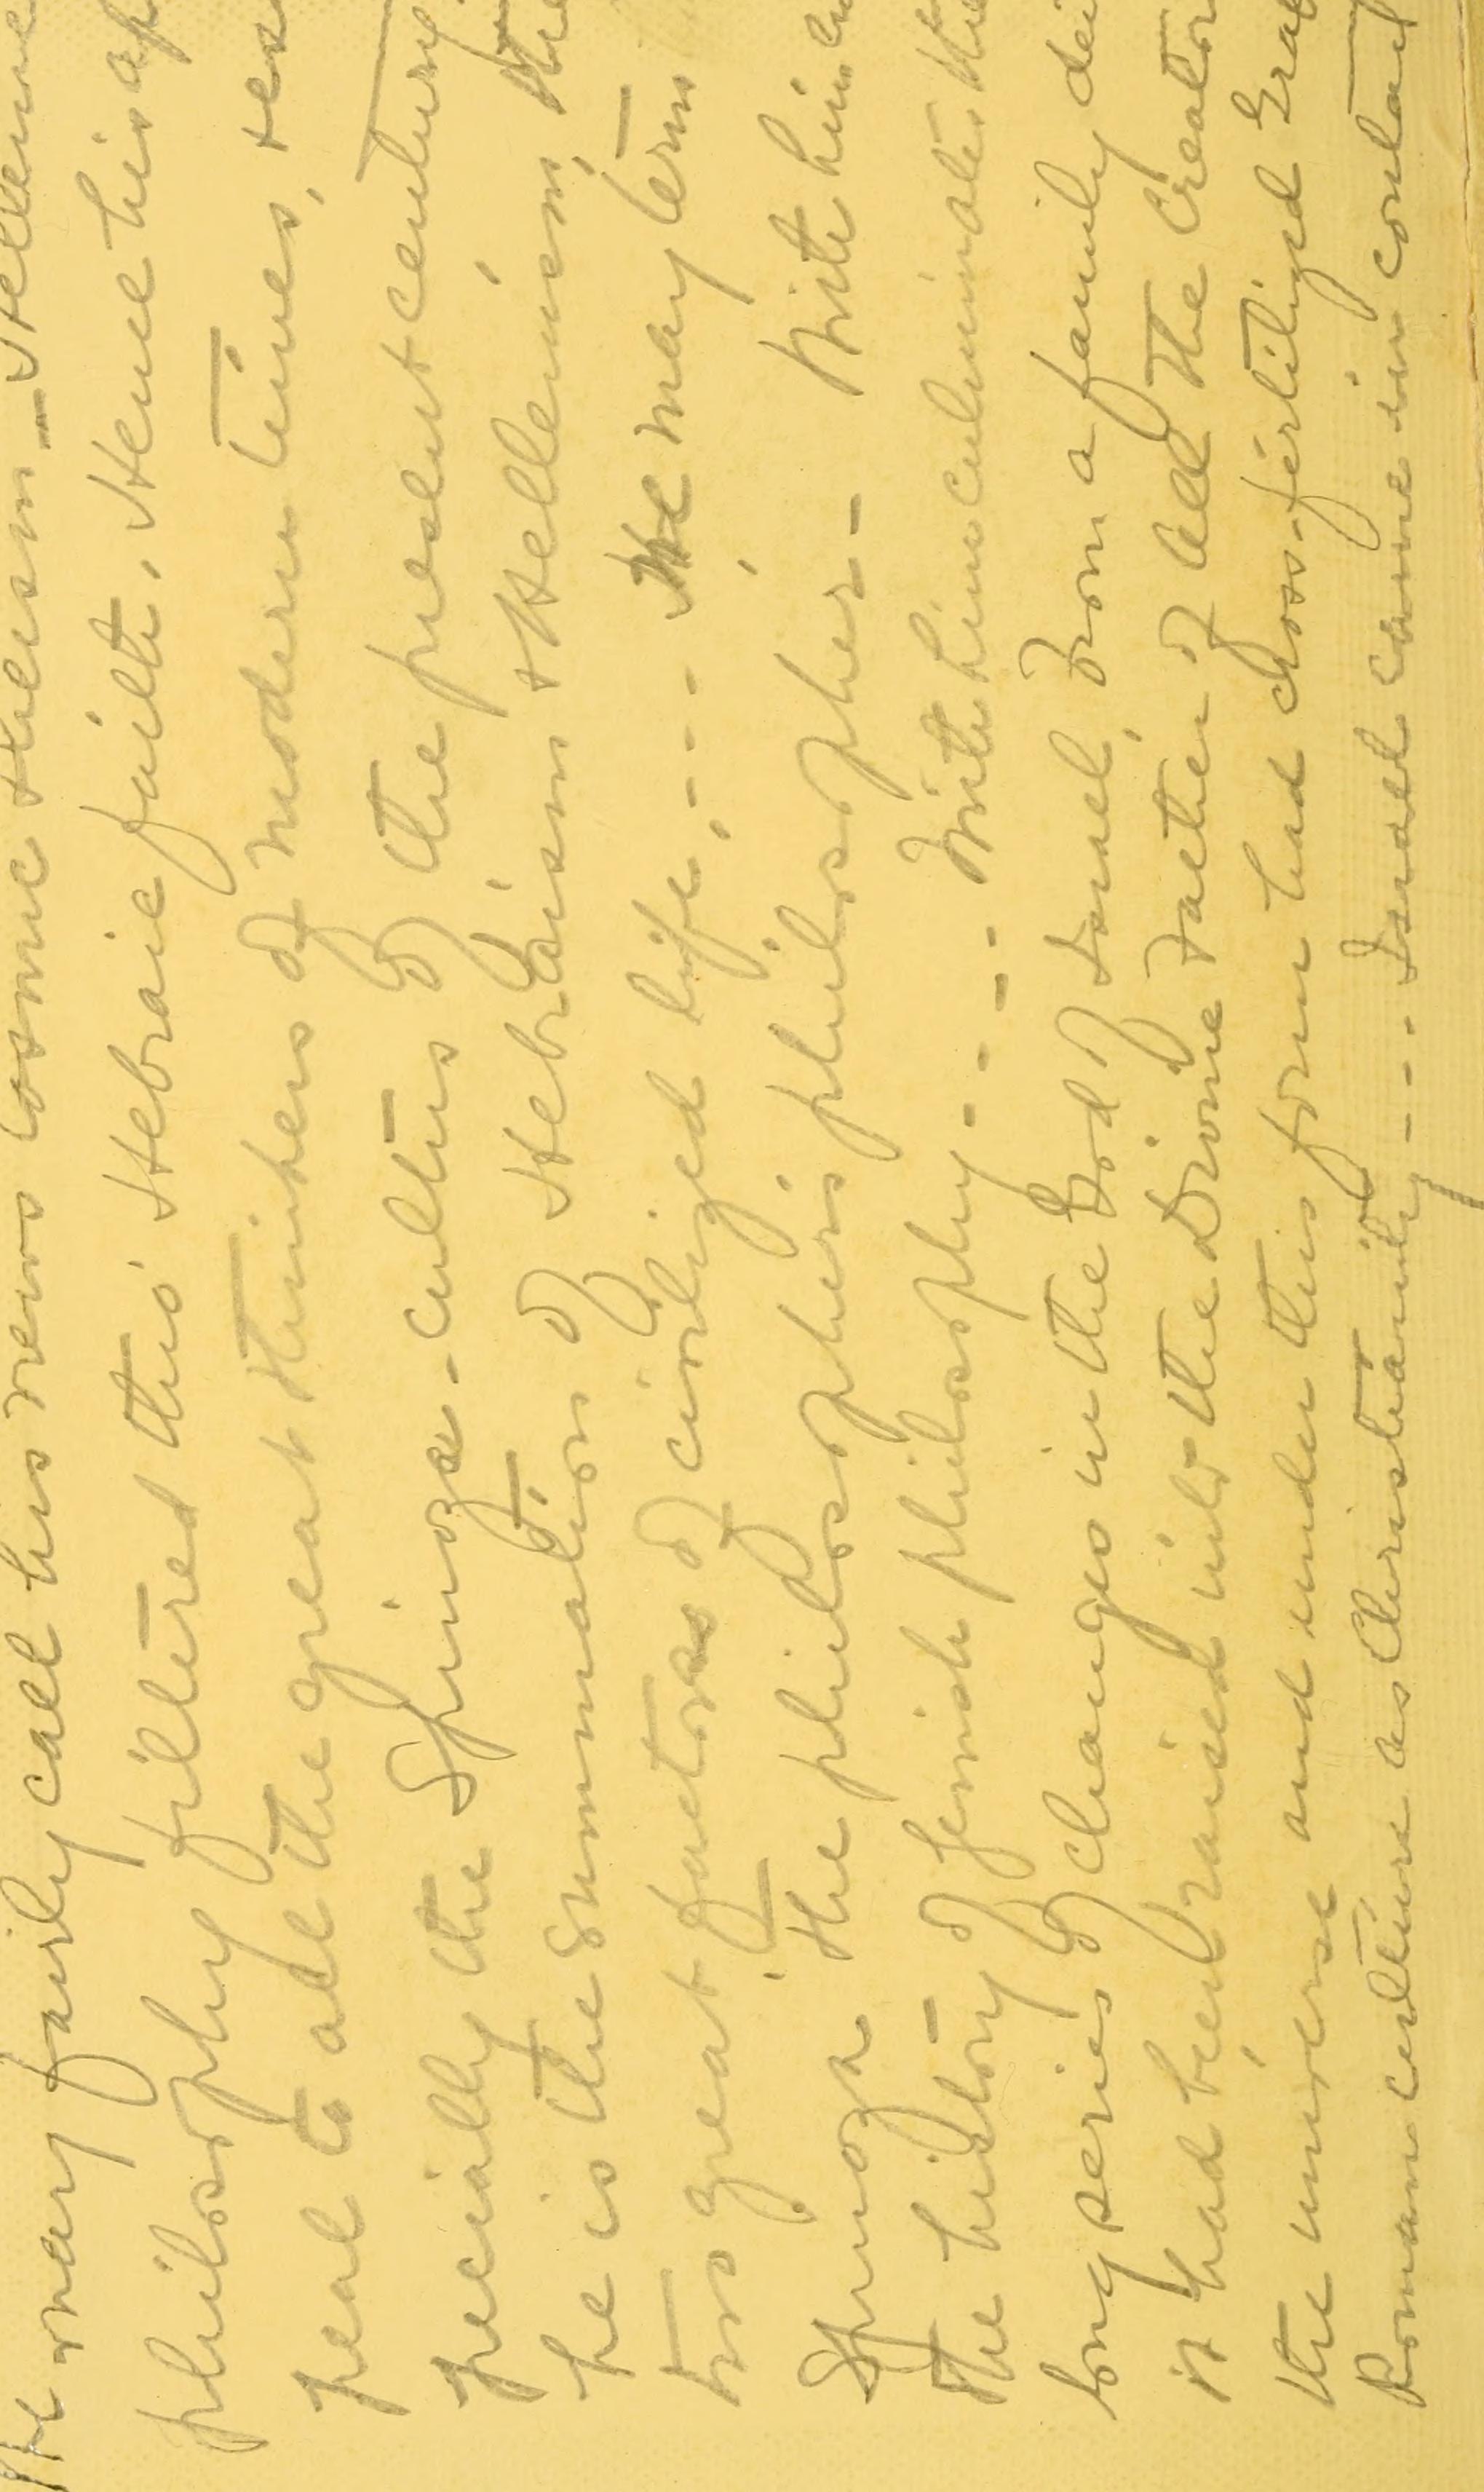 We may fairly call his views Cosmic Theism - Hellenic
philosophy filtered thro' Hebraic faith. Hence his ap
peal to all the great thinkers of modern times,
pecially the Spinoza-cultus of the present century.
he is the summation of Hebraism + Hellenism, the
two great factors of civilized life. - - - He may term
Spinoza the philosopher's philosopher - With him
the history of Jewish philosophy - - - - With him culminates the
long series of changes in the God of Israel. From a family dei
it had been raised into the Divine Father of all the Creator
the universe and under this form had cross-fertilized Graec
Roman culture as Christianity - - - Israel came in contact